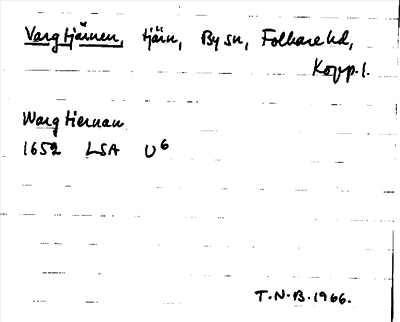 Vargtjärnen, tjärn, By sn, Folkare hd,
Kopp. l.
Wargtiernan
1652 LSA U6
T.N.B. 1966.